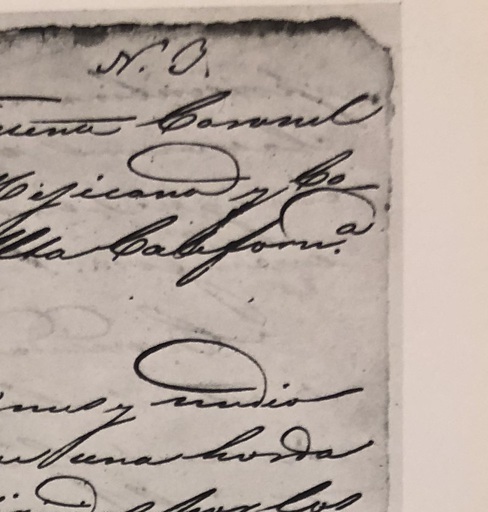 N. 3.
Coronel
Mejicano y Co
Alta Californ.ª
y medio
una horda
por los